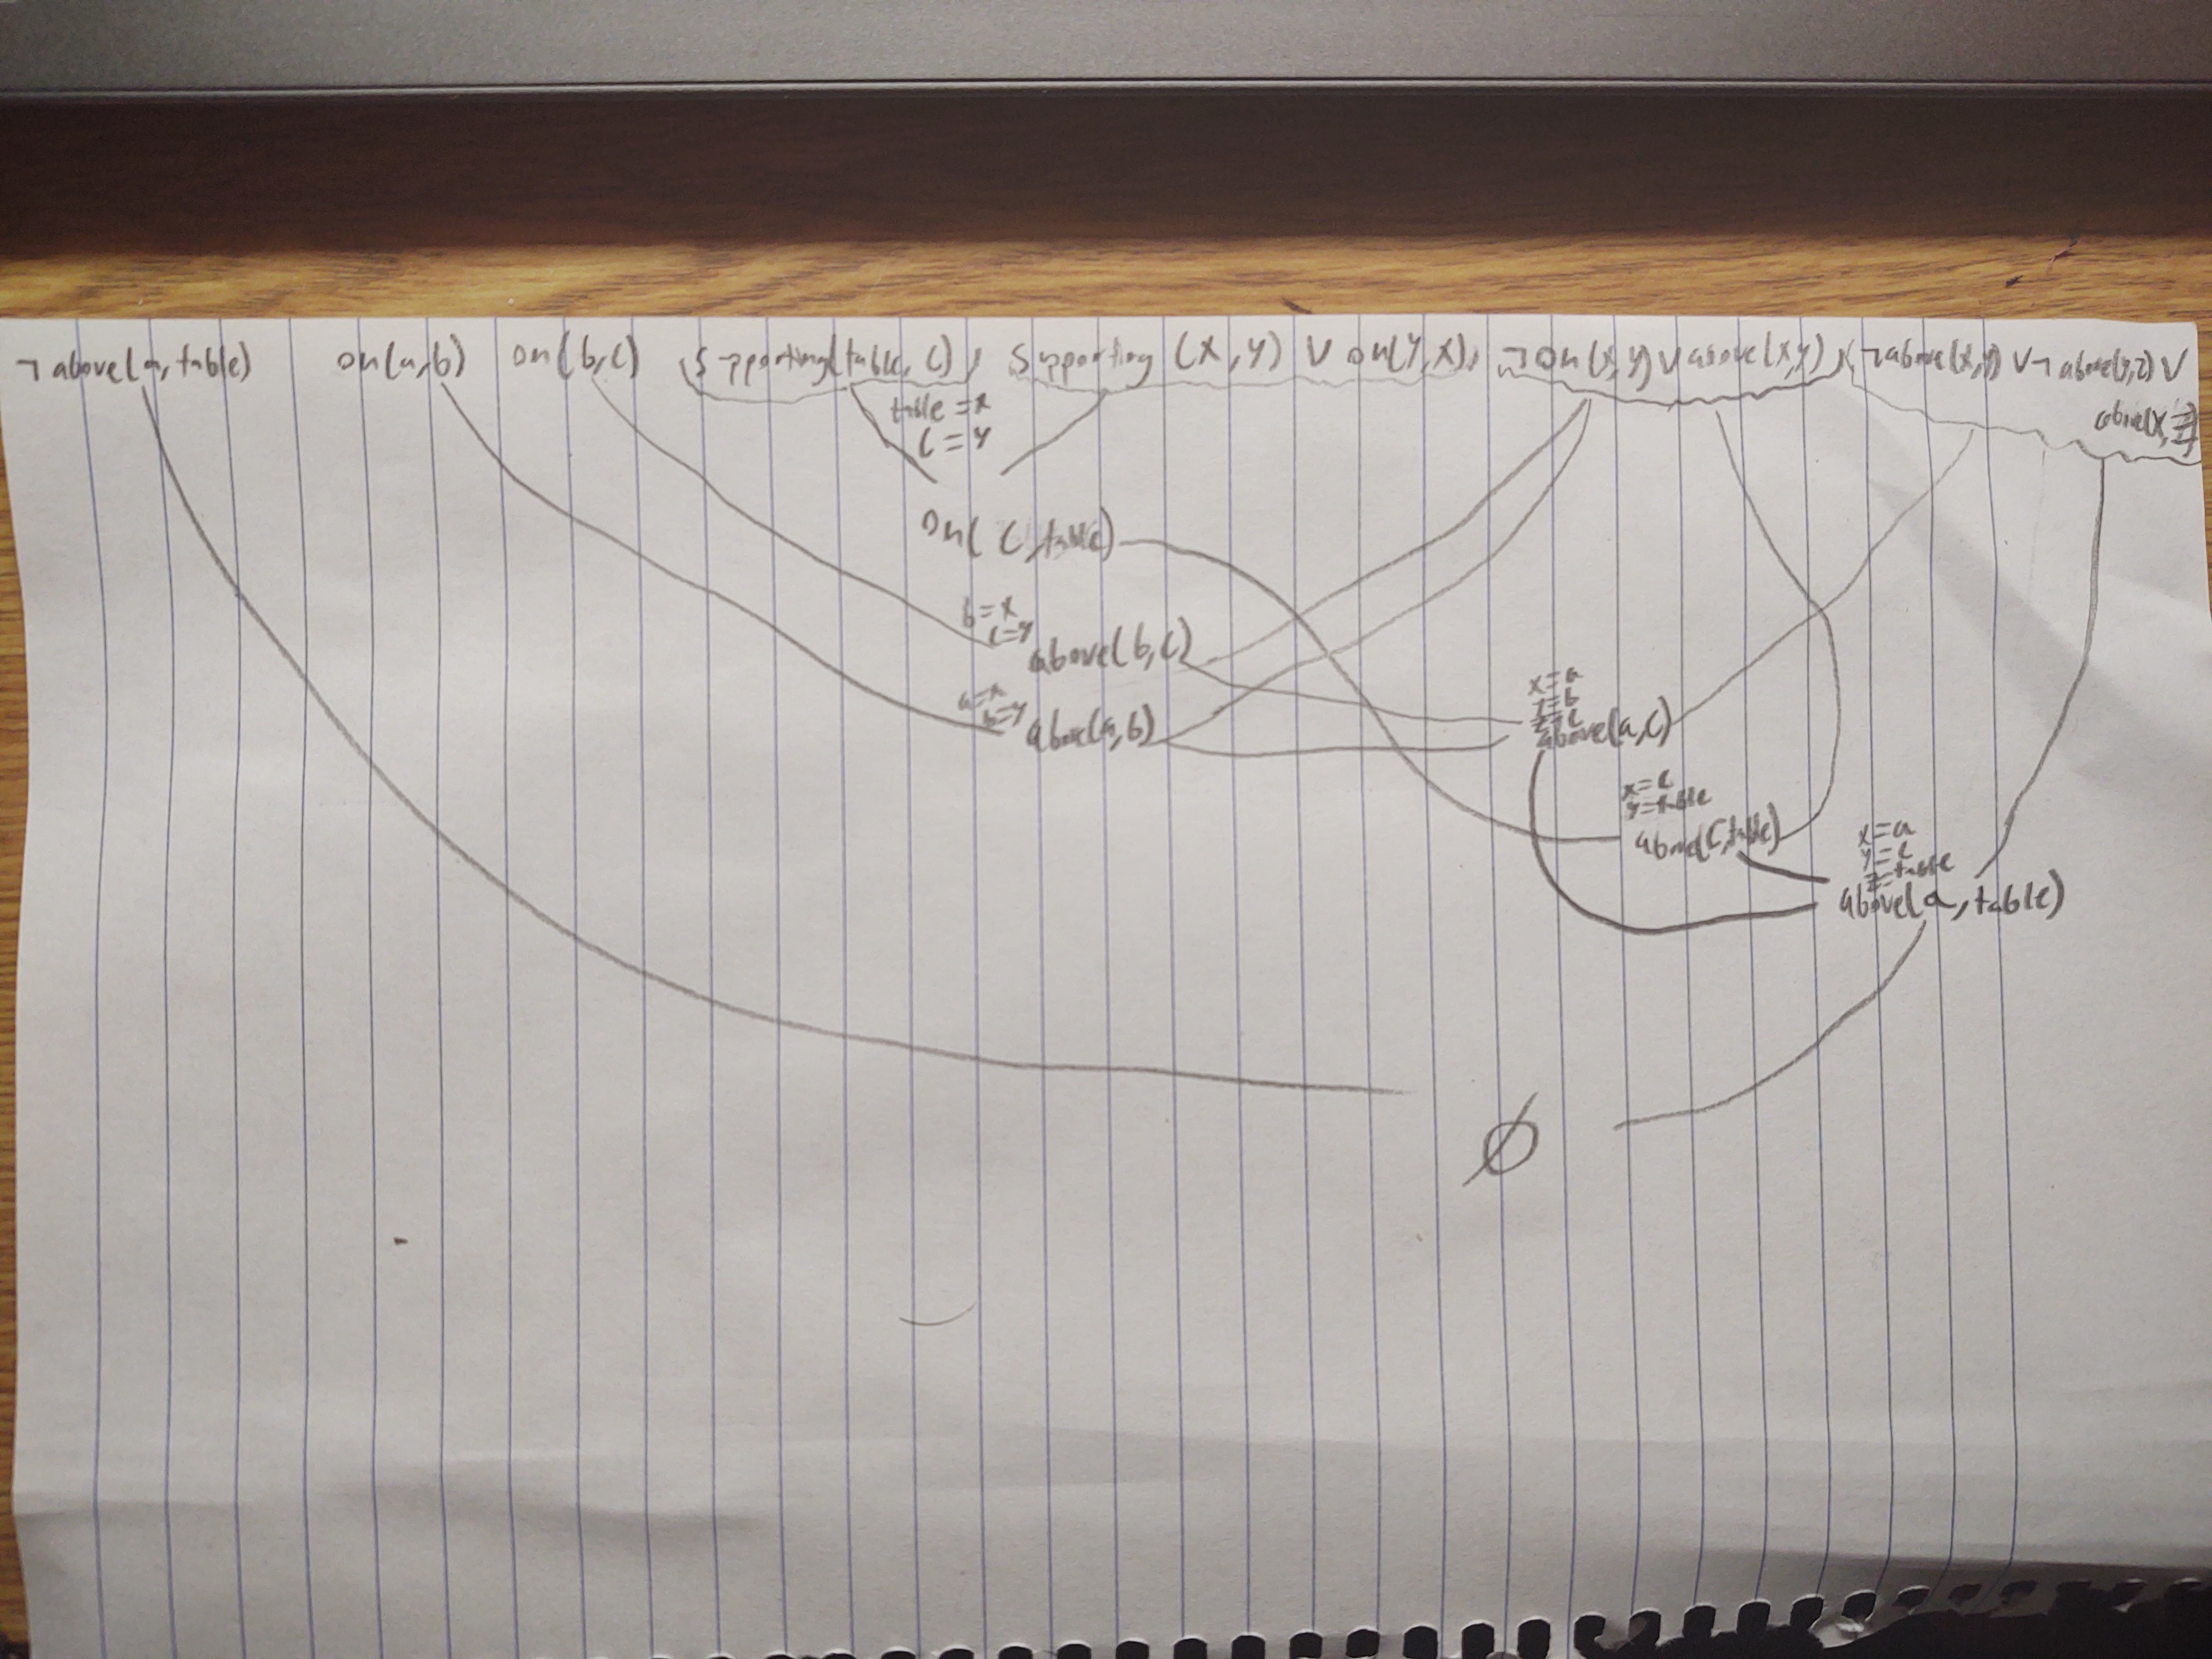 ¬above(a, table) on(a,b) on(b,c) {supporting(table, c)} supporting (x, y) ∨ on(y, x), ¬on(x, y) ∨ above(x,y), ¬above(x,y) ∨ ¬above(y,z) ∨
above(x, z)
table = x
c = y
on( c, table)
b = x
c = y
above(b, c)
a = x
b = y
above(a, b)
x = a
y = b
z = c
above(a, c)
x = c
y = table
above(c, table)
x = a
y = c
z = table
above(a, table)
∅